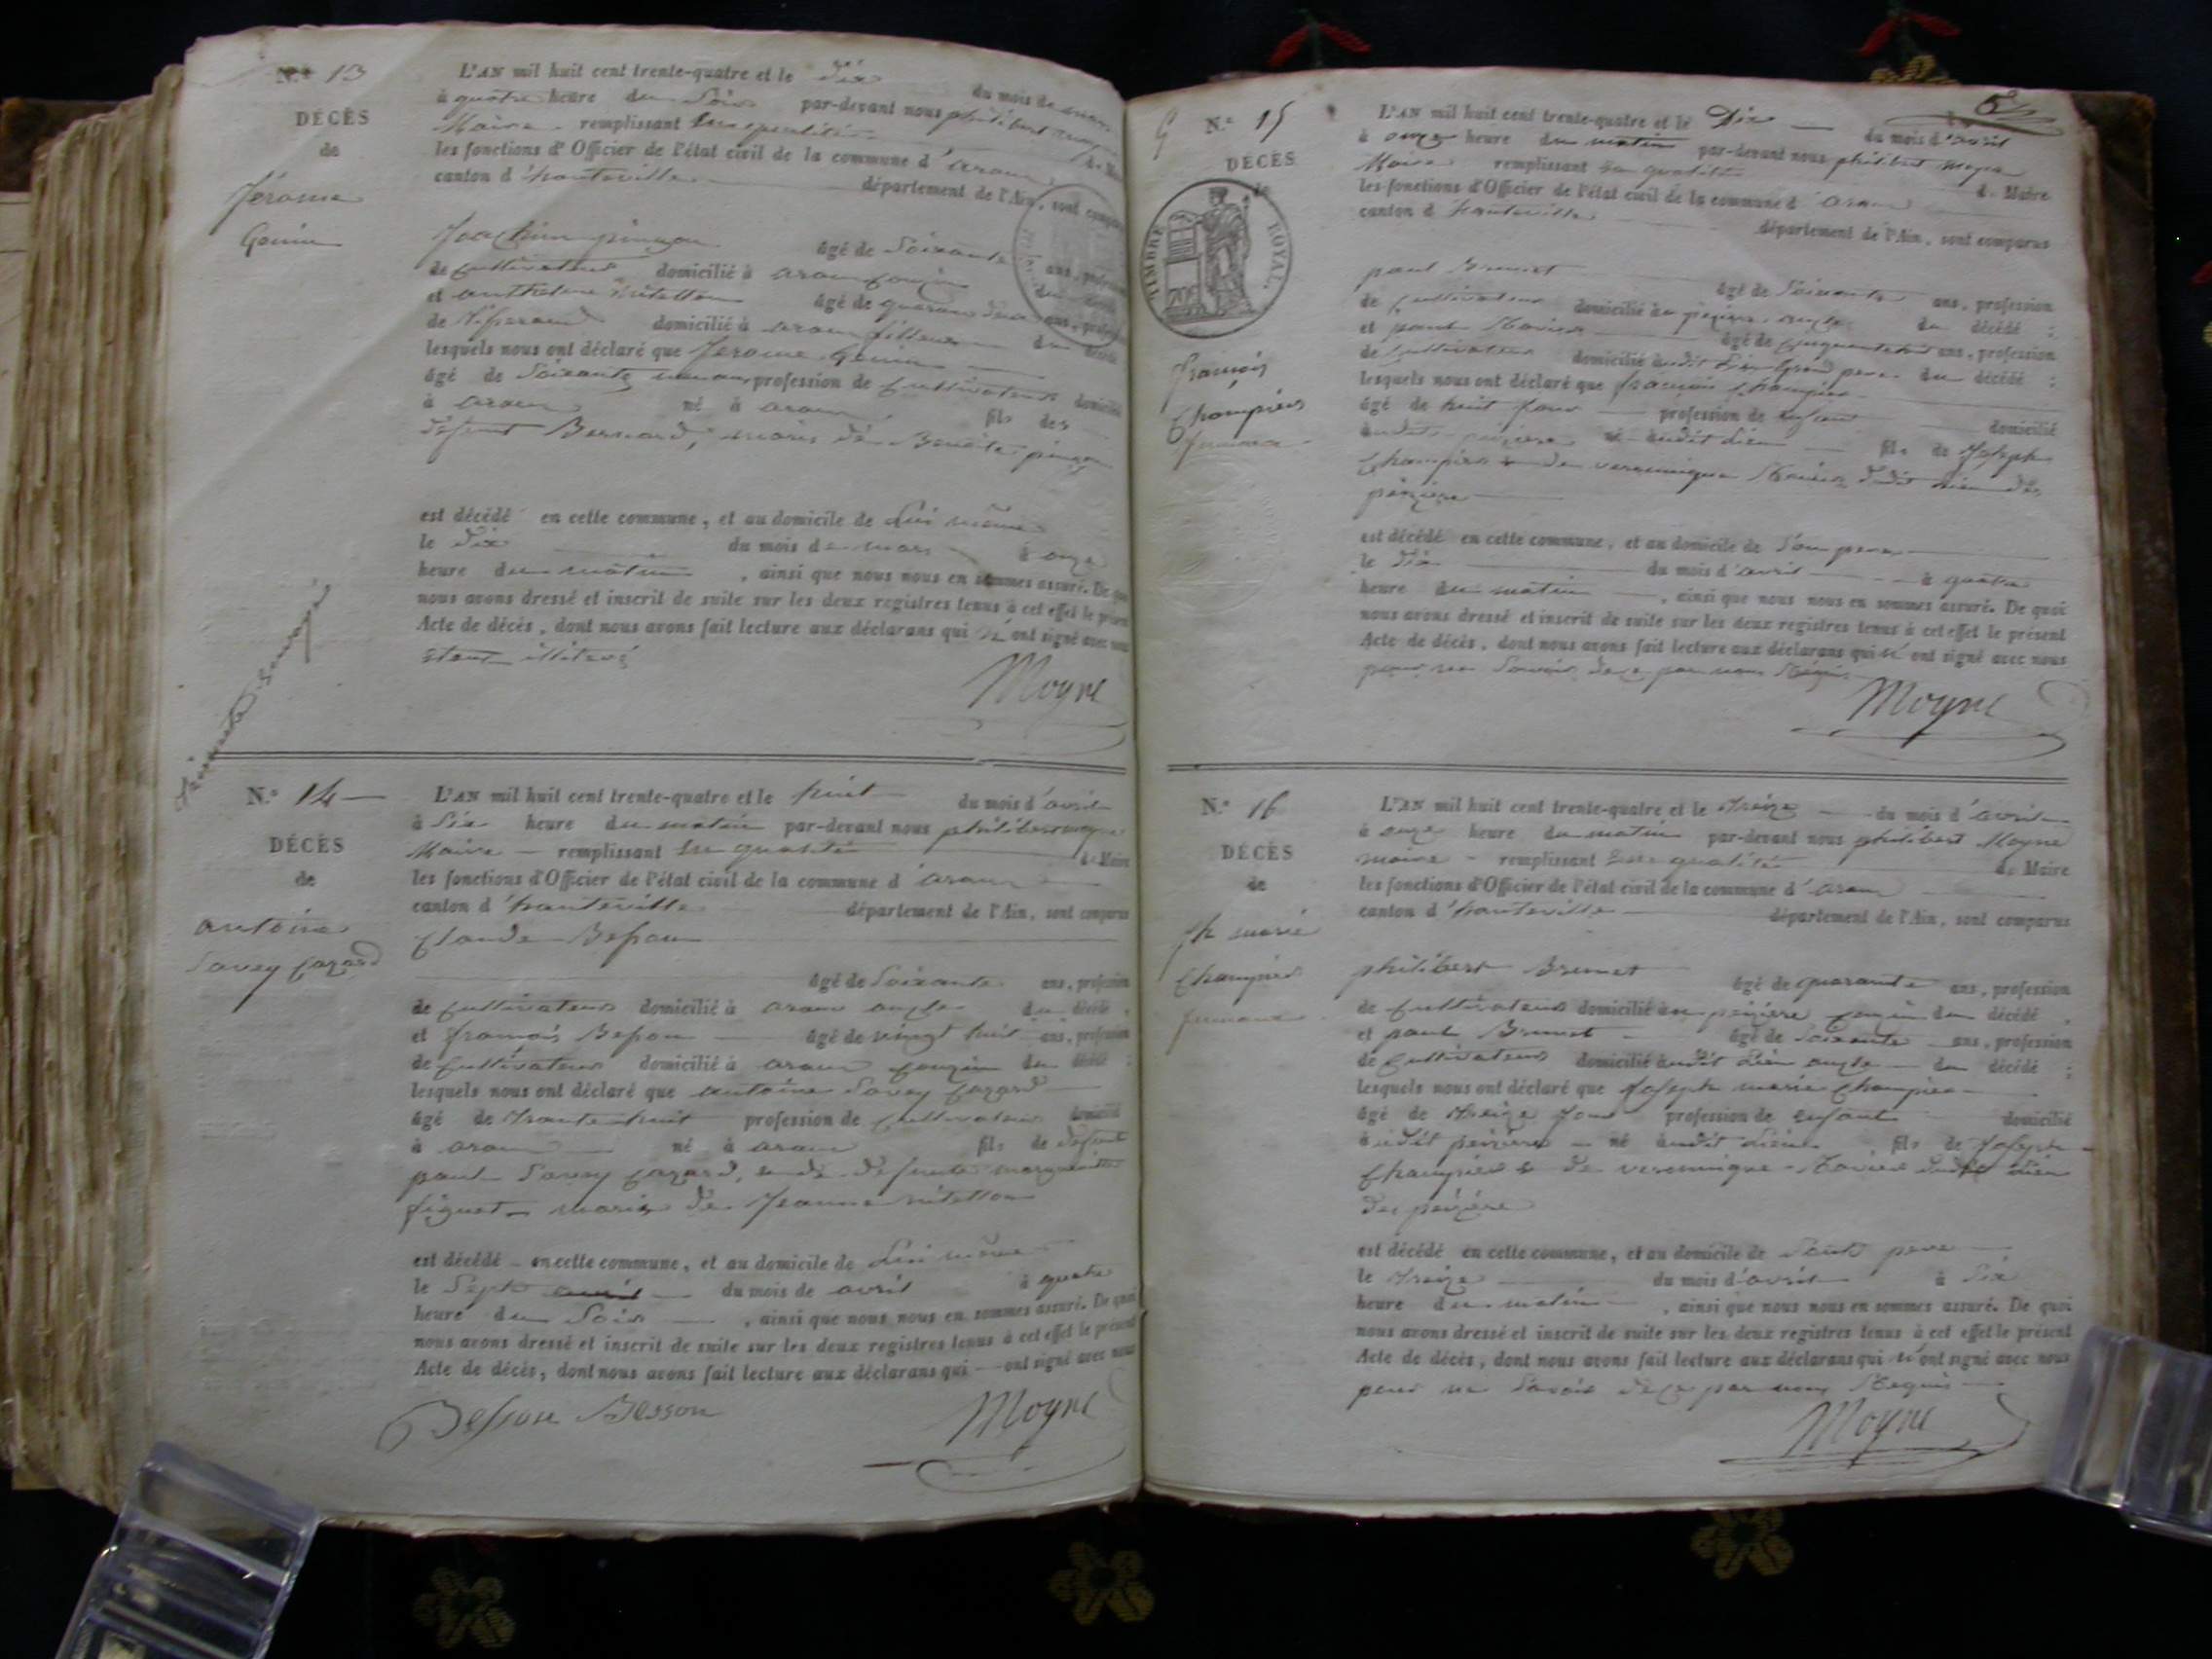 N.° 13
DÉCÈS
de
Jérome
Genin
L'AN mil huit cent trente-quatre et le dix du mois de mars
à quatre heure du Soir par-devant nous philibert
Maire remplissant
les fonctions d'Officier de l'état civil de la commune d'aranc
canton d'hauteville département de l'Ain, sont
Joachim pingon âgé de Soixante ans,
de Cultivateur domicilié à aranc Couzin du décédé
et anthelme mitellon âgé de quarante deux ans,
de domicilié à aranc filleul du décédé
lesquels nous ont déclaré que Jerome Genin
âgé de Soixante ans profession de Cultivateur domicilié
à aranc né à aranc fils des
defunt Bernard, maris de Benoite pingon
est décédé en cette commune, et au domicile de Lui même
le dix du mois de mars à onze
heure du matin, ainsi que nous nous en sommes assuré. De quoi
nous avons dressé et inscrit de suite sur les deux registres tenus à cet effet le présent
Acte de décès, dont nous avons fait lecture aux déclarans qui n'ont signé avec nous
etant illiteré
Moyne
N.° 14
DÉCÈS
de
antoine
Savey Cazard
L'AN mil huit cent trente-quatre et le huit du mois d'avril
à Six heure du matin par-devant nous philibert moyne
Maire remplissant Sus qualité de Maire
les fonctions d'Officier de l'état civil de la commune d'aranc
canton d'hauteville département de l'Ain, sont comparus
Claude Besson
âgé de Soixante ans, profession
de Cultivateur domicilié à aranc oncle du décédé
et francois Besson âgé de vingt huit ans, profession
de Cultivateur domicilié à aranc couzin du décédé :
lesquels nous ont déclaré que antoine Savey Cazard
âgé de trante huit profession de Cultivateur domicilié
à aranc né à aranc fils de defunt
paul Savey Cazard, & de defunte marguerite
figuet maris de Jeanne mitellon
est décédé en cette commune, et au domicile de Lui même
le Sept avril du mois de avril à quatre
heure du Soir, ainsi que nous nous en sommes assuré. De quoi
nous avons dressé et inscrit de suite sur les deux registres tenus à cet effet le présent
Acte de décès, dont nous avons fait lecture aux déclarans qui ont signé avec nous
Besson Besson Moyne
N.° 15
DÉCÈS
de
TIMBRE ROYAL.
francois
Champier
L'AN mil huit cent trente-quatre et le Dix du mois d'avril
à onze heure du matin par-devant nous philibert moyne
Maire remplissant Sa qualité de Maire
les fonctions d'Officier de l'état civil de la commune d'aranc
canton d'hauteville département de l'Ain, sont comparus
paul Brunet âgé de Soixante ans, profession
de Cultivateur domicilié au pezieres oncle du décédé :
et paul Ravier âgé de Cinquante huit ans, profession
de Cultivateur domicilié audit Lieu Grand pere du décédé :
lesquels nous ont déclaré que francois Champier
âgé de huit jour profession de enfant domicilié
audit peiziere né audit Lieu fils de Joseph
Champier & de veronnique Ravier dudit Lieu des
peiziere
est décédé en cette commune, et au domicile de Son pere
le Dix du mois d'avril à quatre
heure du matin, ainsi que nous nous en sommes assuré. De quoi
nous avons dressé et inscrit de suite sur les deux registres tenus à cet effet le présent
Acte de décès, dont nous avons fait lecture aux déclarans qui n'ont signé avec nous
pour ne Savoir de ce par nous Requis
Moyne
N.° 16
DÉCÈS
de
Jh marie
Champier
L'AN mil huit cent trente-quatre et le treize du mois d'avril
à onze heure du matin par-devant nous philibert Moyne
maire remplissant qualité de Maire
les fonctions d'Officier de l'état civil de la commune d'aranc
canton d'hauteville département de l'Ain, sont comparus
philibert Brunet âgé de quarante ans, profession
de Cultivateur domicilié au peiziere couzin du décédé
et paul Brunet âgé de Soixante ans, profession
de Cultivateur domicilié audit Lieu oncle du décédé :
lesquels nous ont déclaré que Joseph marie Champier
âgé de treize jour profession de enfant domicilié
audit peiziere né audit Lieu fils de Joseph
Champier & de veronnique Ravier dudit Lieu
des peiziere
est décédé en cette commune, et au domicile de pere
le treize du mois d'avril à Six
heure du matin, ainsi que nous nous en sommes assuré. De quoi
nous avons dressé et inscrit de suite sur les deux registres tenus à cet effet le présent
Acte de décès, dont nous avons fait lecture aux déclarans qui n'ont signé avec nous
pour ne Savoir de ce par nous Requis
Moyne